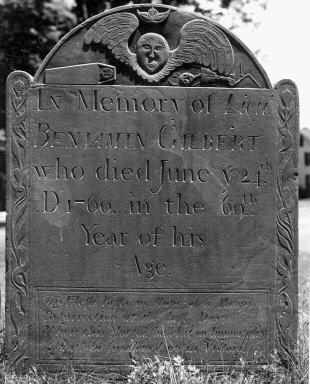 In Memory of Lieut
BENJAMIN GILBERT
who died June yᵉ 24ᵗʰ
A.D 1760. in the 69ᵗʰ
Year of his
Age.
His Flesh Rests in Hope of a
Resurrection at the last Day
When this Mortal